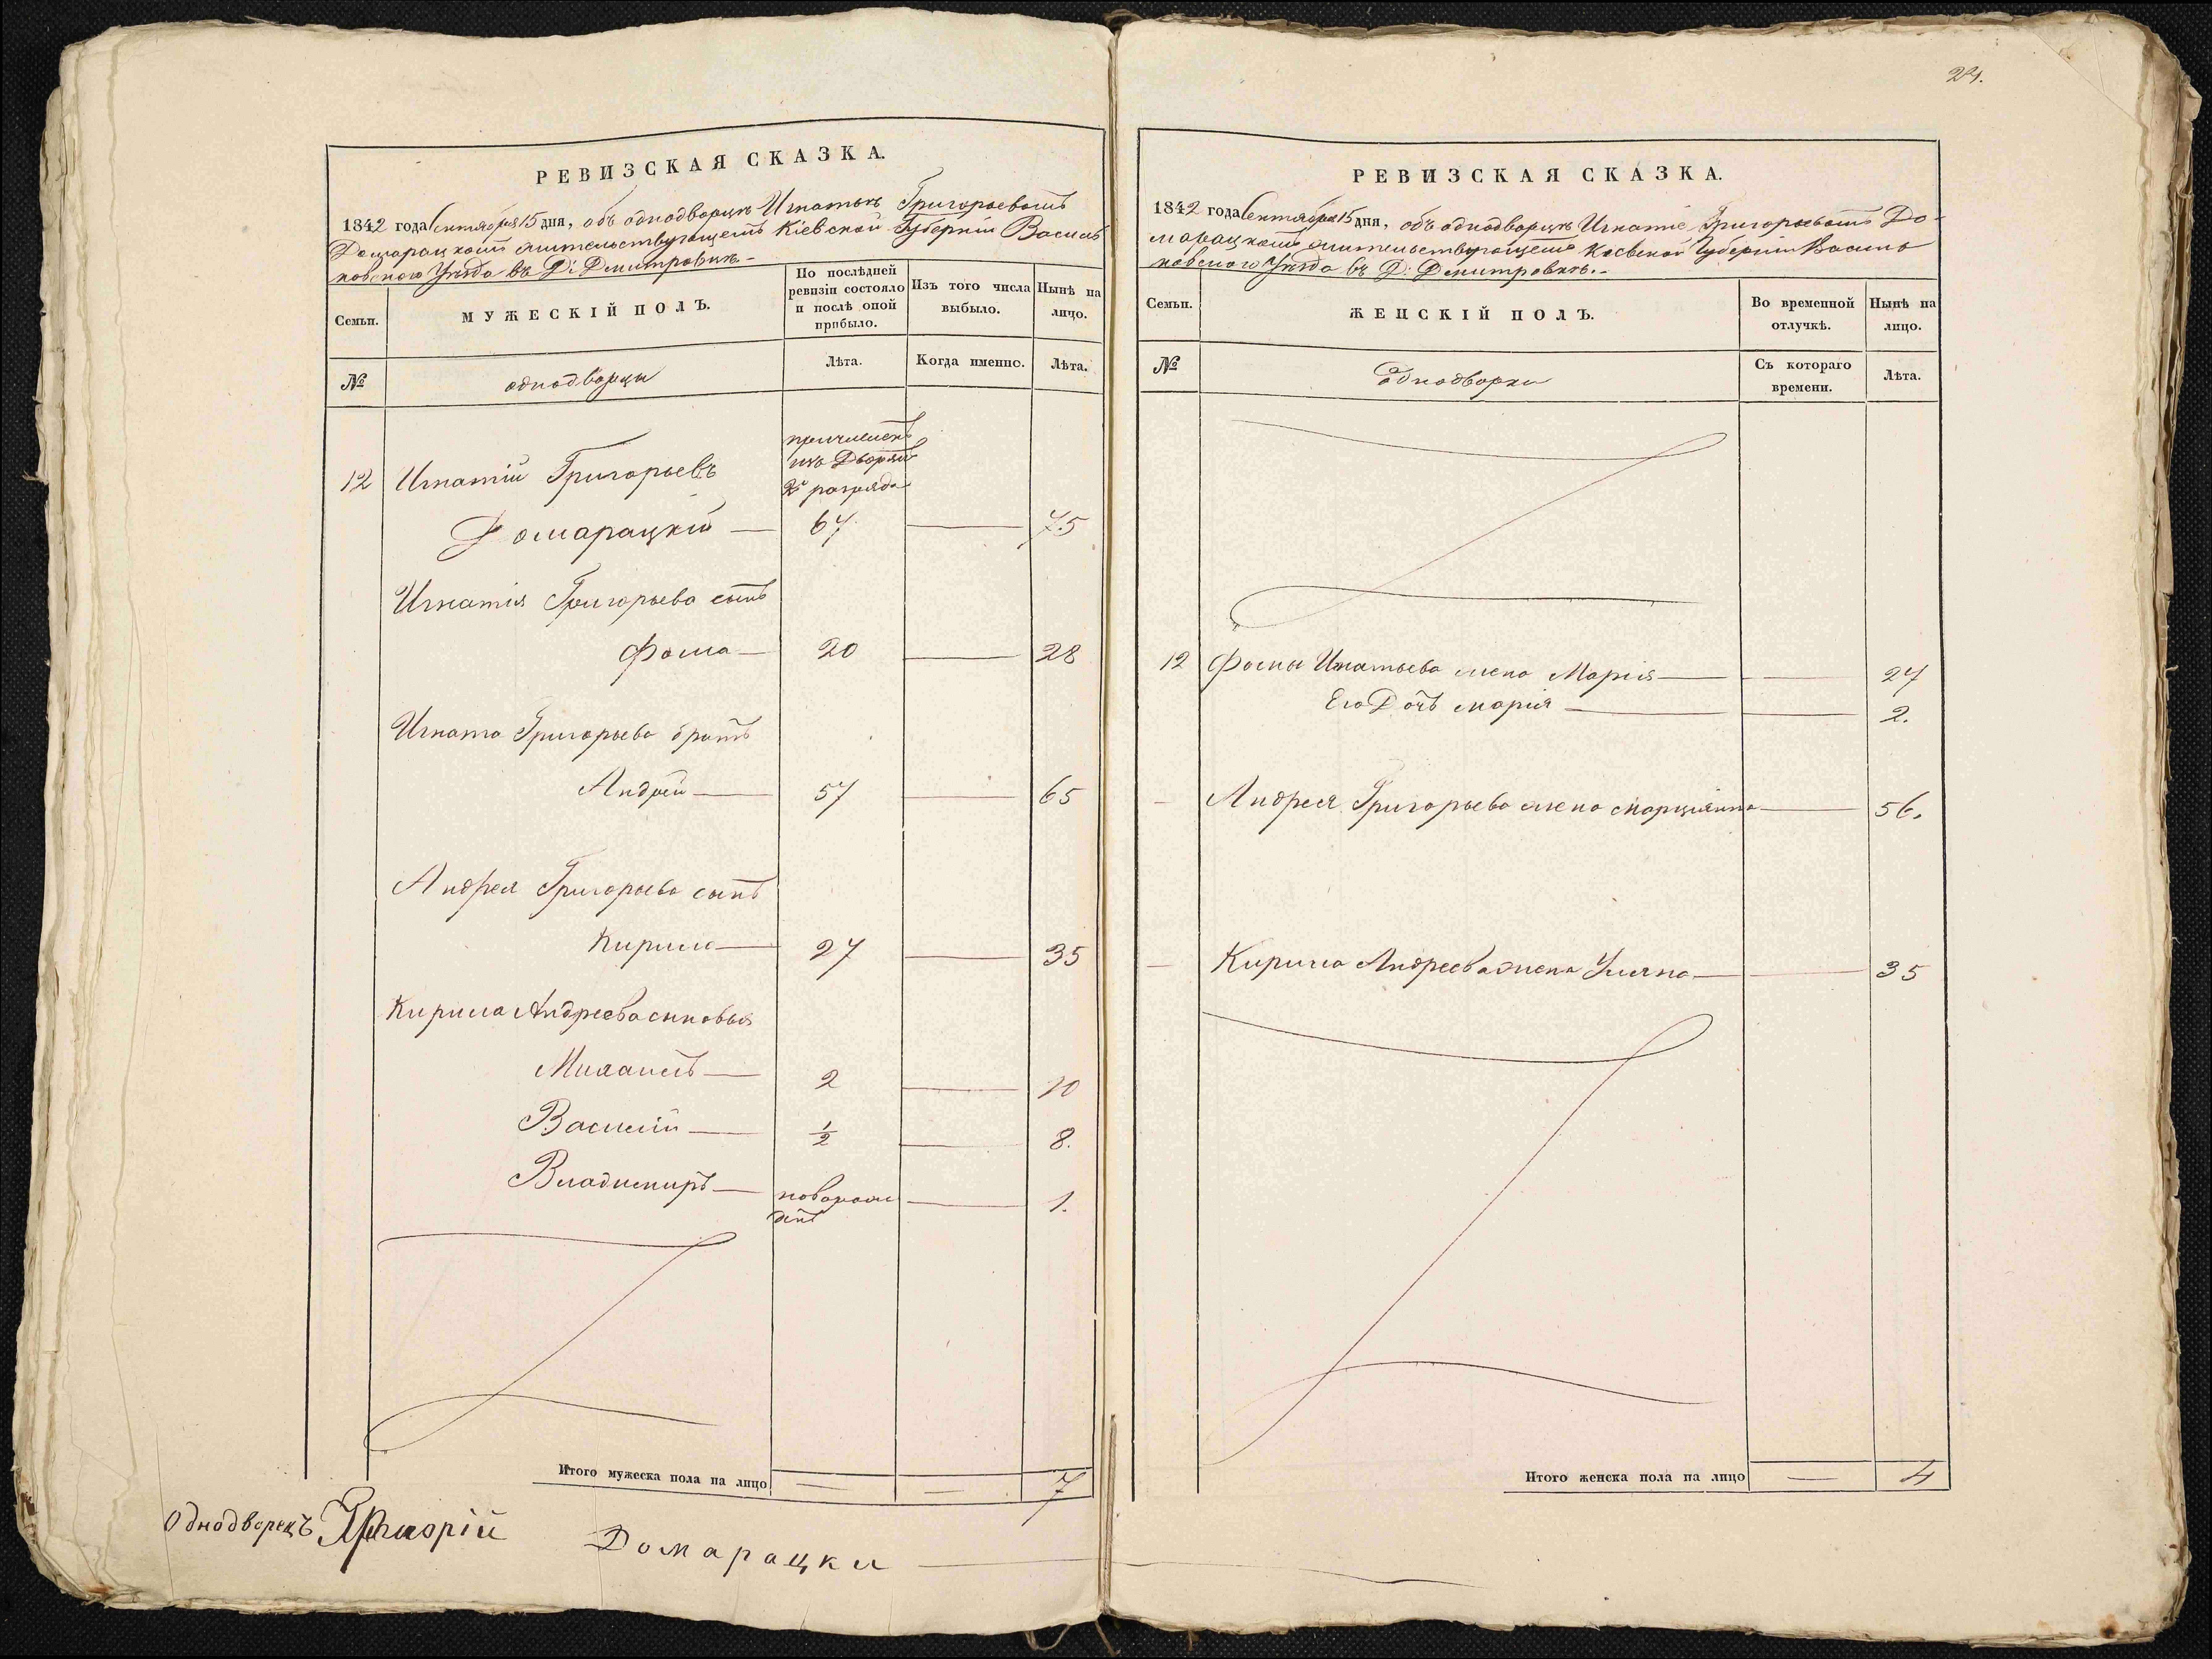 РЕВИЗСКАЯ СКАЗКА.
1842 года Сентября 15 дня, объ однодворцѣ Игнатье Григорьевомъ
Домарацкомъ жительствующемъ Кіевской Губерніи Василь
ковского Уѣзда въ Д: Дмитровкѣ.-
Семьи.
МУЖЕСКІЙ ПОЛЪ.
По послѣдней
ревизіи состояло
и послѣ оной
прибыло.
Изъ того числа
выбыло.
Нынѣ на
лицо.
№
однодворцы
Лѣта.
Когда именно.
Лѣта.
причисленъ
изъ Дворянъ
2го разряда
12 Игнатій Григорьевъ
Домарацкій — 67. — 75
Игнатія Григорьева сынъ
Фома — 20 — 28
Игната Григорьева братъ
Андрей — 57 — 65
Андрея Григорьева сынъ
Кирило — 27 — 35
Кирила Андреева сыновья
Михаилъ — 2 — 10
Василій — ½ — 8.
Владимиръ — новорож — 1.
денъ
Итого мужеска пола на лицо — — 7
Однодворецъ Григорій Домарацки
24.
РЕВИЗСКАЯ СКАЗКА.
1842 года Сентября 15 дня, объ однодворцѣ Игнатіе Григорьевомъ До-
марацкомъ жительствующемъ Кіевской Губерніи Василь
ковского Уѣзда въ Д: Дмитровкѣ.-
Семьи.
ЖЕНСКІЙ ПОЛЪ.
Во временной
отлучкѣ.
Нынѣ на
лицо.
№
однодворки
Съ котораго
времени.
Лѣта.
12 Фомы Игнатьева жена Марія — — 27
Его Дочь Марія — — 2.
- Андрея Григорьева жена Марціянна — 56.
— Кирила Андреева жена Уляна — — 35
Итого женска пола на лицо — 4